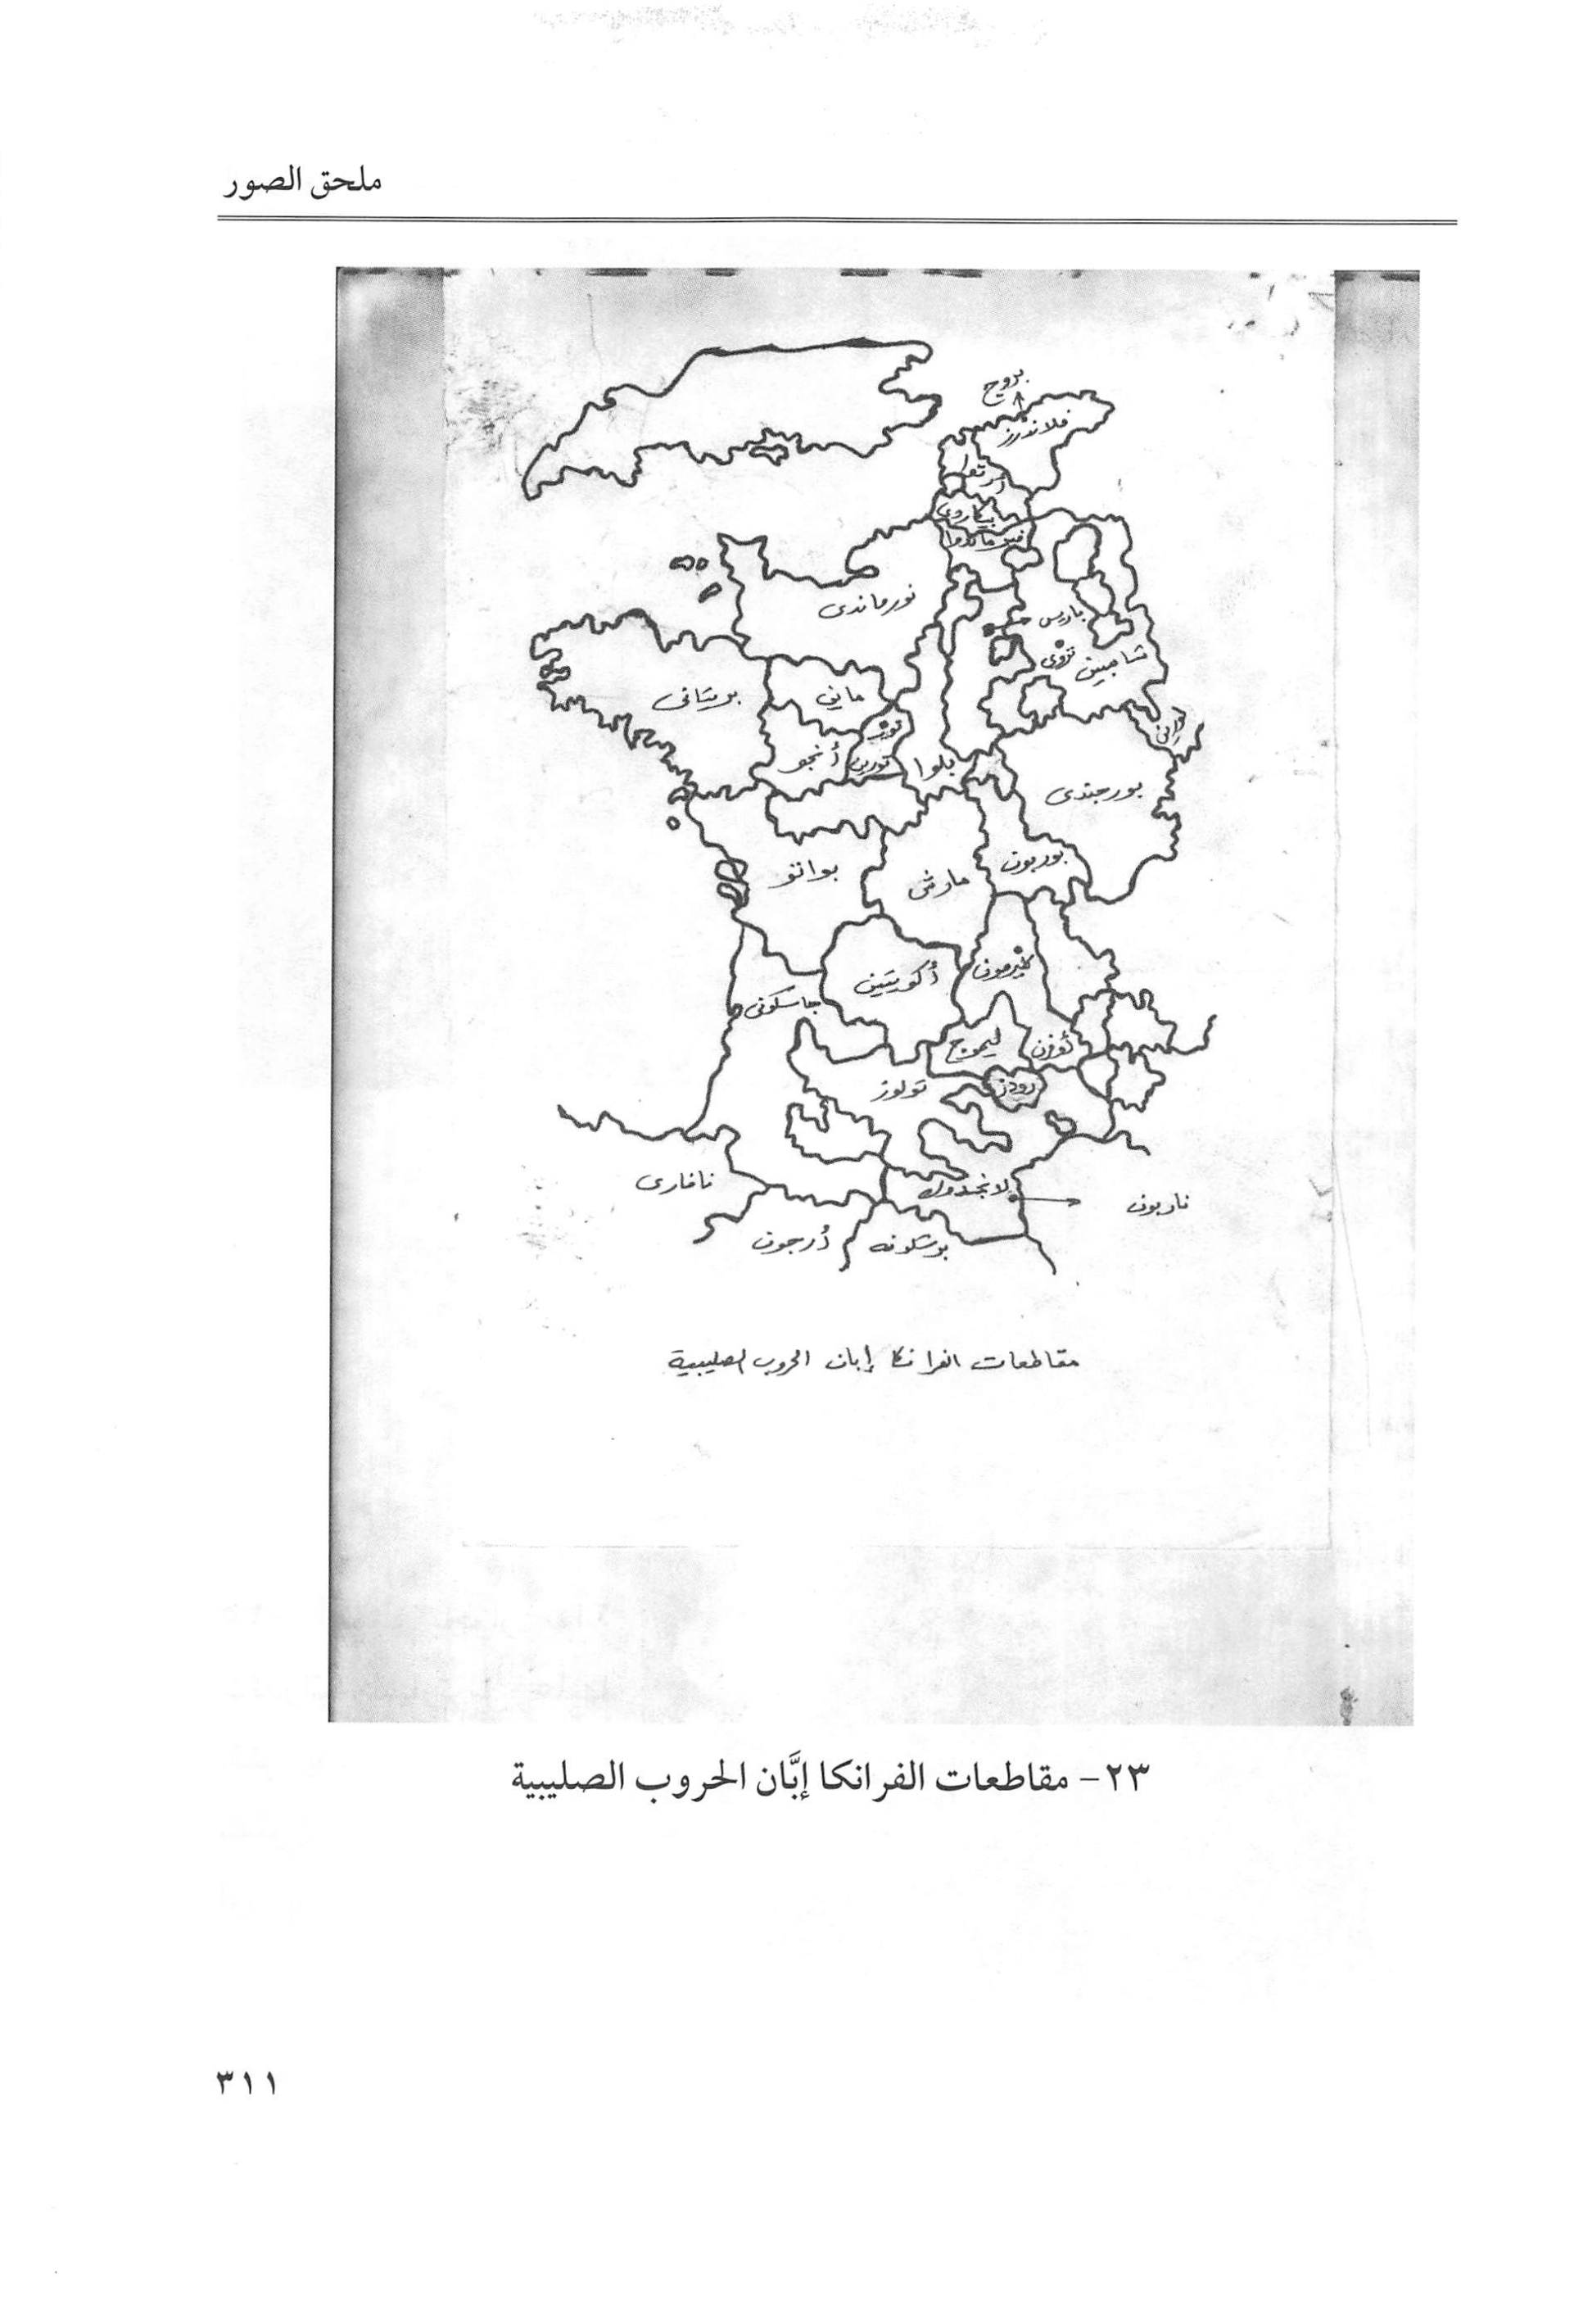 ملحق الصور
بروج
فلاندرز
أرتوا
بيكاردى
فيرماندوا
نورماندى
باريس
تروى
شامبين
بريتانى
مانى
تور
لورين
أنجو
تورين
بلوا
بورجندى
بواتو
مارش
بوربون
أكويتين
كليرمون
جاسكونى
ليموج
أوفرن
تولوز
رودز
نافارى
لانجدوك
ناربون
أرجون
برشلونه
مقاطعات الفرانكا إبان الحروب الصليبية
٢٣- مقاطعات الفرانكا إبَّان الحروب الصليبية
٣١١